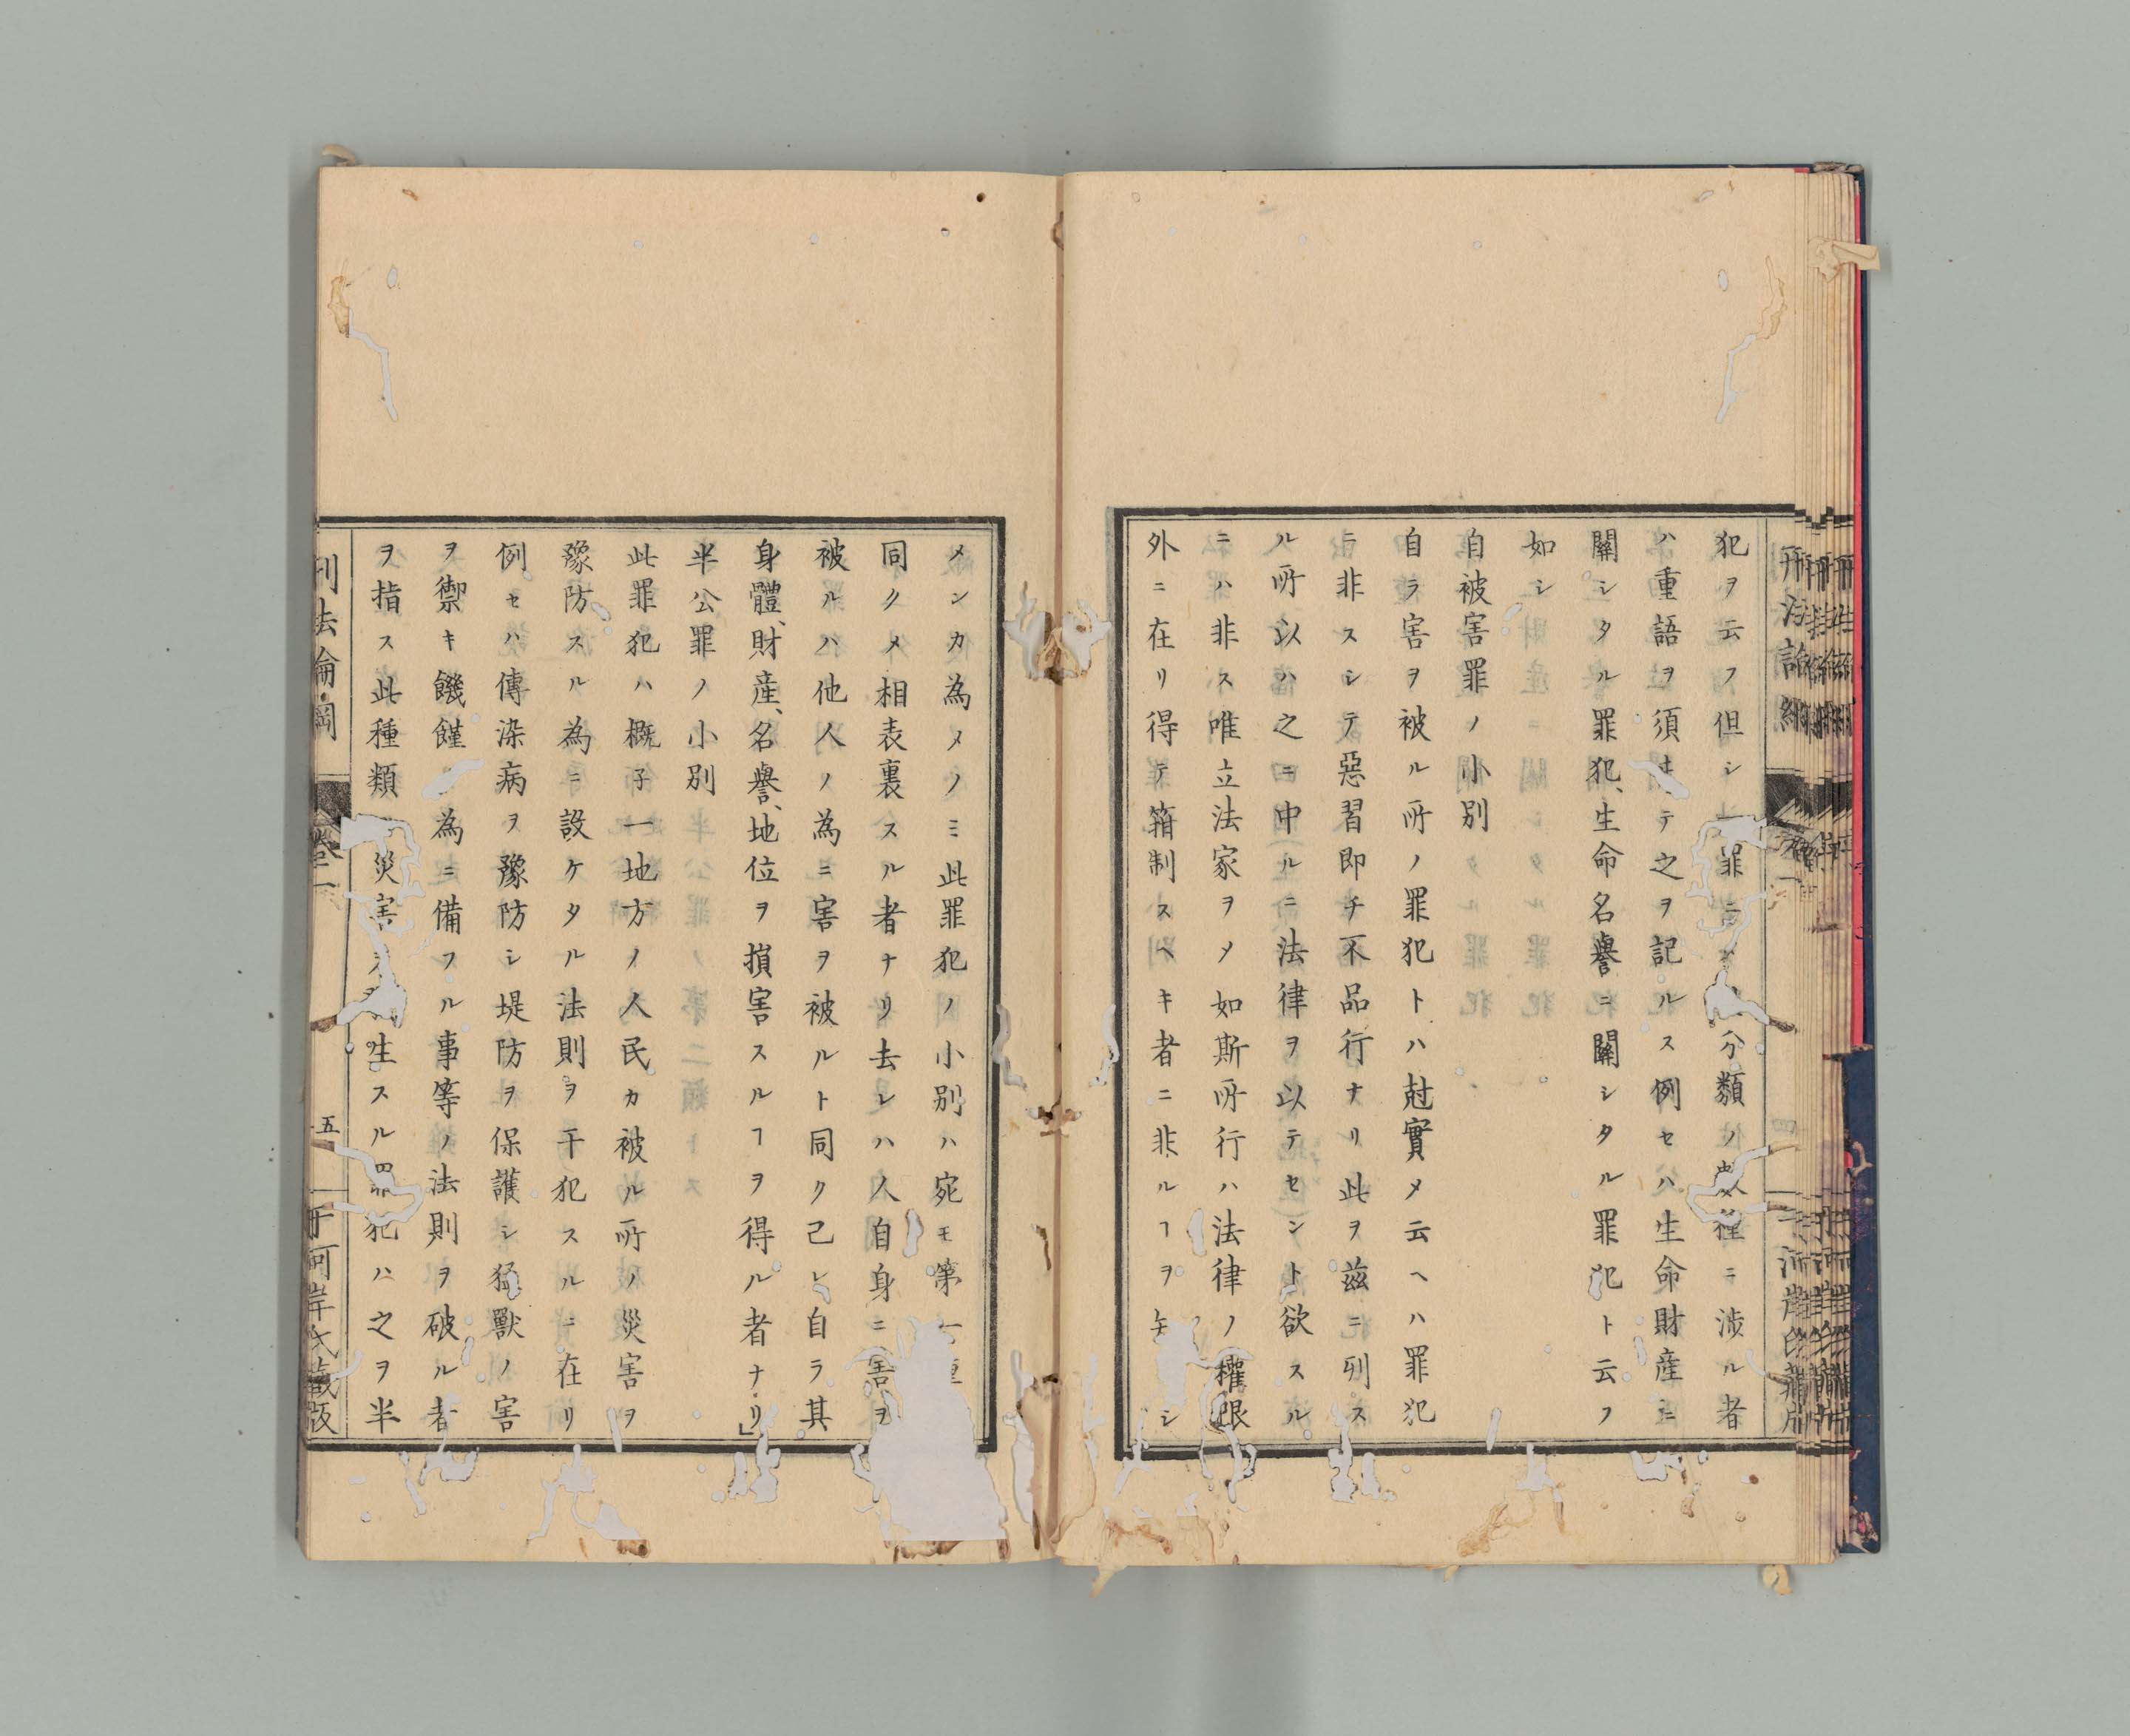 犯ヲ云フ但シ罪ニ分類ノ數種ニ涉ル者
ハ重語ヲ須ヒテ之ヲ記ルス例セハ生命財産ニ
關シタル罪犯、生命名譽ニ關シタル罪犯ト云フ
如シ
自被害罪ノ小別
自ラ害ヲ被ル所ノ罪犯トハ尅實メ云ヘハ罪犯
ニ非スシテ惡習即チ不品行ナリ此ヲ茲ニ列ス
ル所以ハ之ニ中ルニ法律ヲ以テセント欲スル
ニハ非ス唯立法家ヲメ如斯所行ハ法律ノ權限
外ニ在リ得テ箝制スヘキ者ニ非ルヿヲ知シ
メンカ為メノミ此罪犯ノ小別ハ宛モ第一種
同クメ相表裏スル者ナリ去レハ人自身ニ害ヲ
被ルハ他人ノ為ニ害ヲ被ルト同ク己レ自ラ其
身體、財産、名譽、地位ヲ損害スルヿヲ得ル者ナリ」
半公罪ノ小別
此罪犯ハ概子一地方ノ人民カ被ル所ノ災害ヲ
豫防スル為ニ設ケタル法則ヲ干犯スルニ在リ
例セハ傳染病ヲ豫防シ堤防ヲ保護シ猛獸ノ害
ヲ禦キ饑饉ノ為ニ備フル事等ノ法則ヲ破ル者
ヲ指ス此種類災害生スル罪犯ハ之ヲ半
刑法論綱
卷一
五
河岸氏藏版